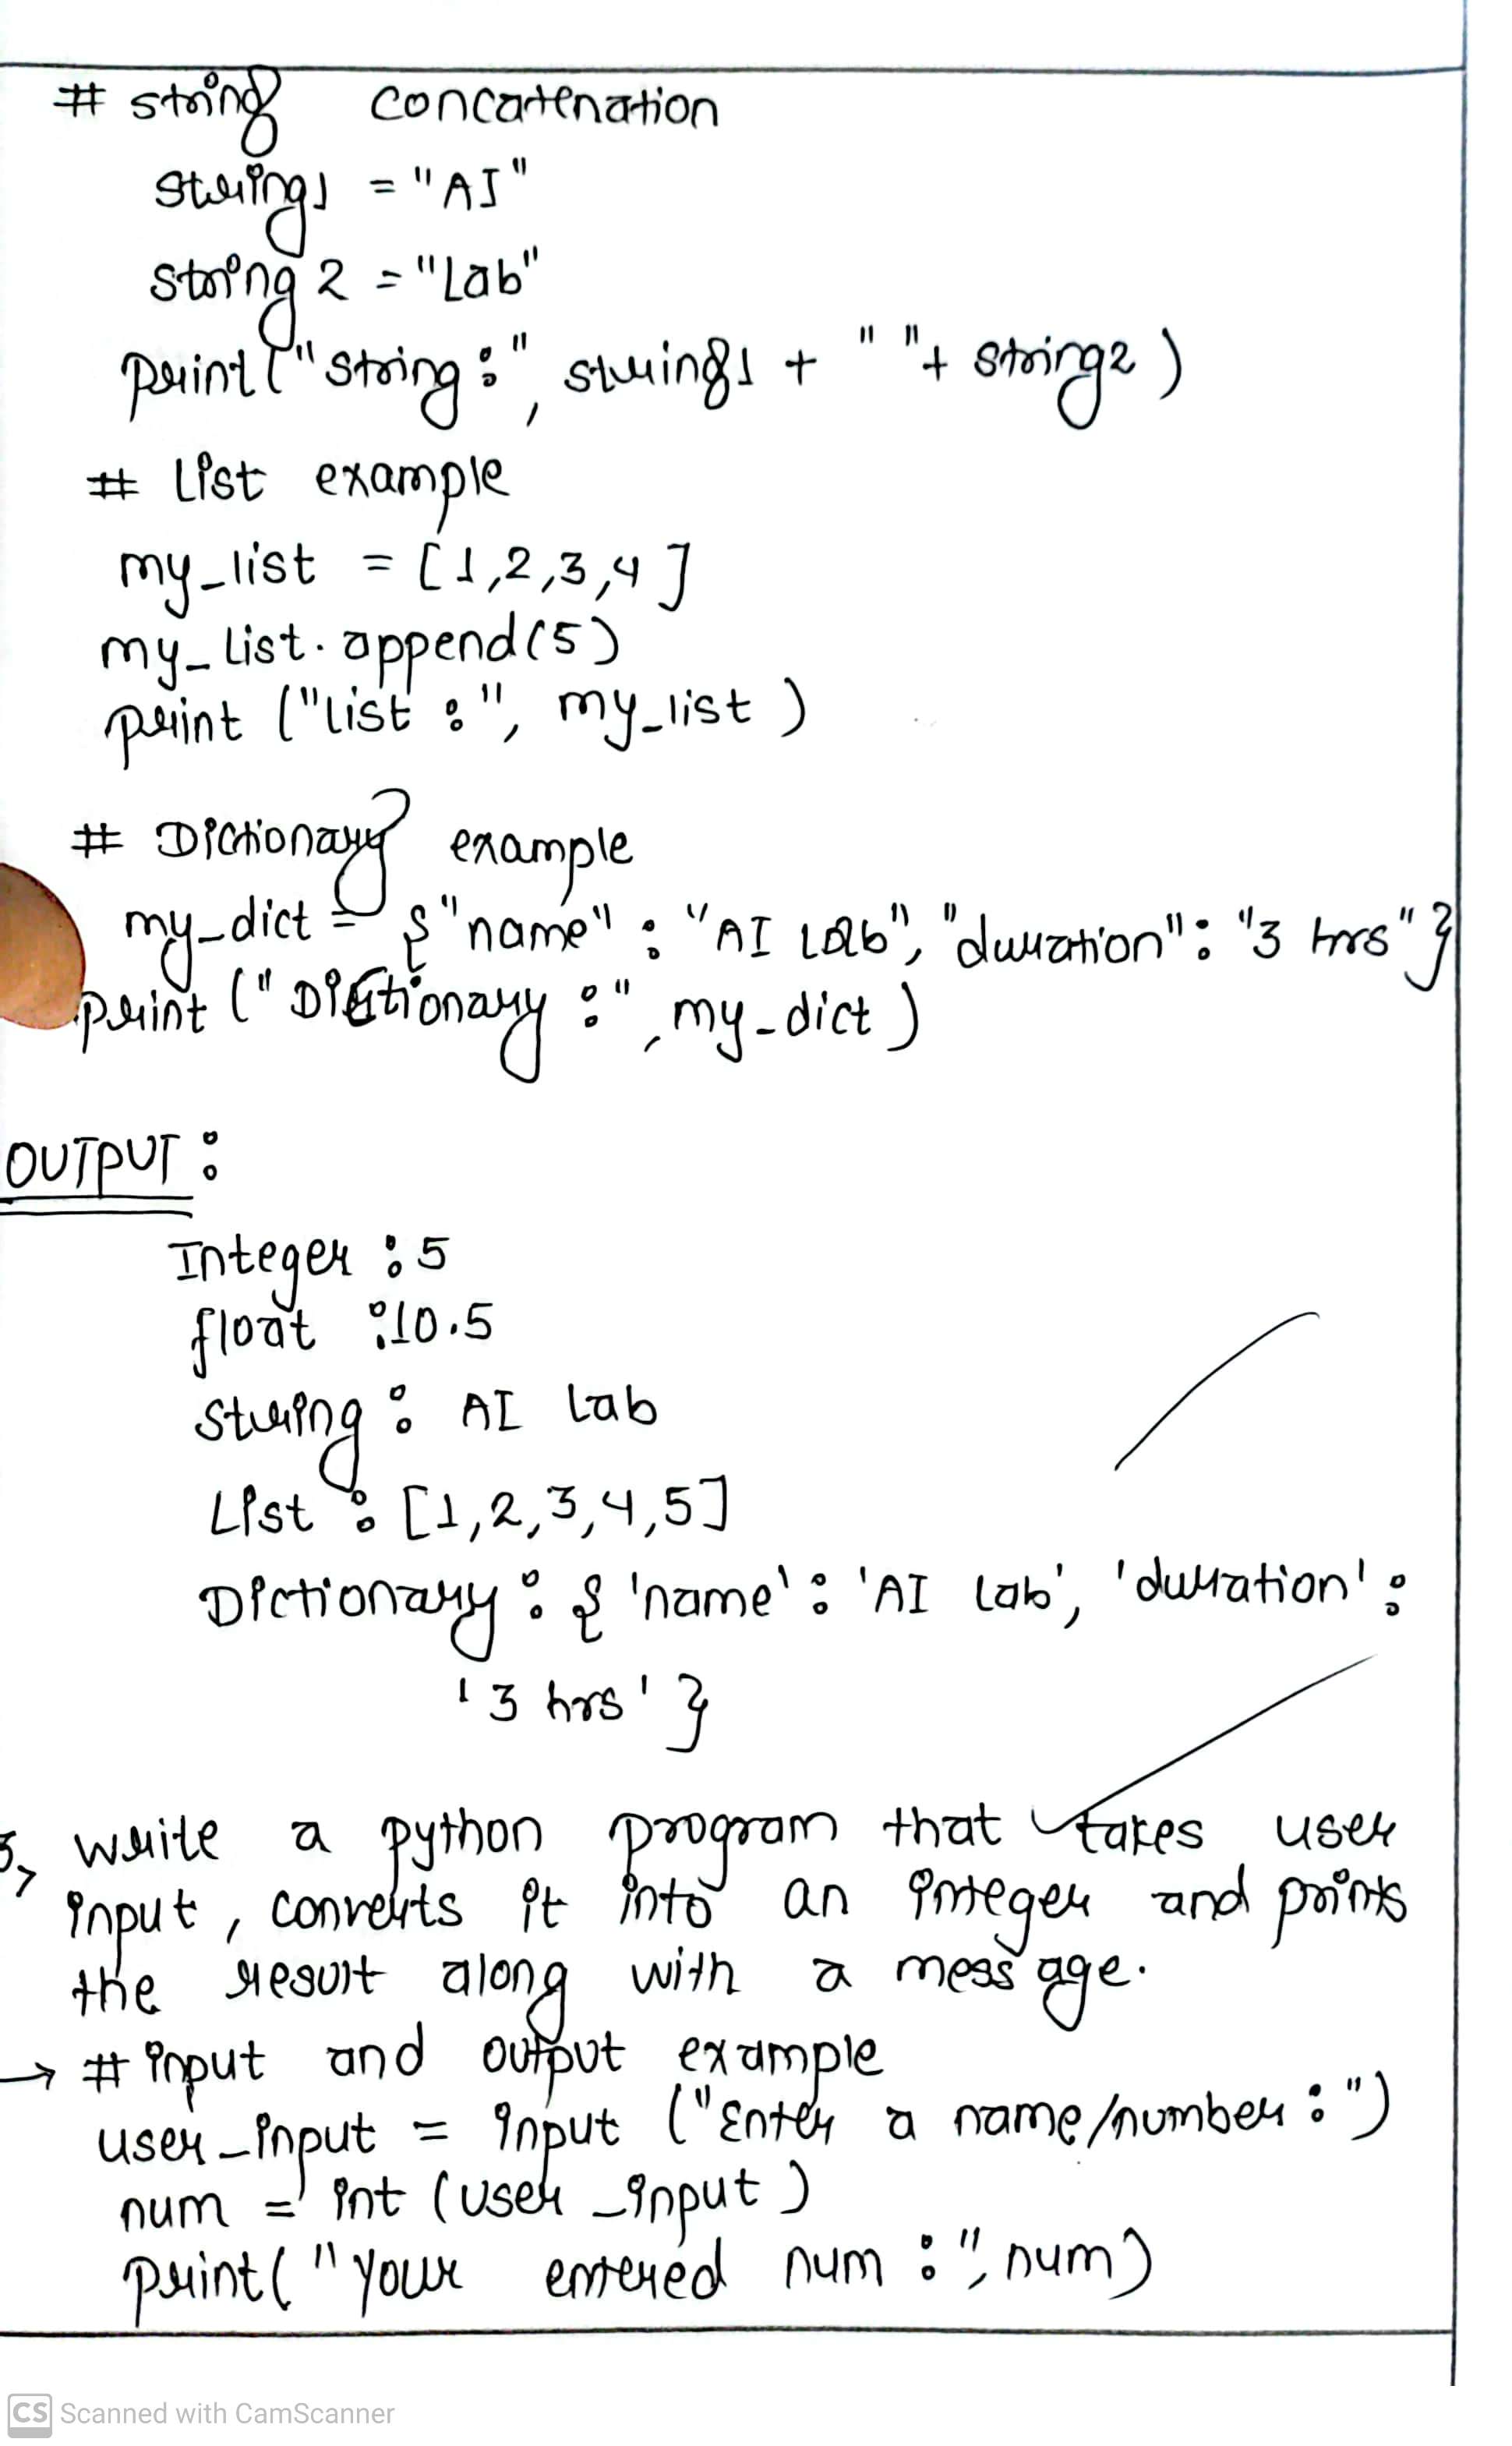 # string concatenation
string1 = "AI"
string 2 = "Lab"
print("string:", string1 + " " + string2)
# List example
my_list = [1,2,3,4]
my_list.append(5)
print ("list :", my_list )
# Dictionary example
my_dict = {"name" : "AI Lab", "duration": "3 hrs"}
print (" Dictionary :", my_dict )
OUTPUT :
Integer : 5
float : 10.5
String : AI Lab
List : [1,2,3,4,5]
Dictionary : { 'name' : 'AI Lab', 'duration' :
'3 hrs' }
3, write a python program that takes user
input, converts it into an integer and prints
the result along with a message.
→ # input and output example
user_input = input ("Enter a name/number : ")
num = int (user_input )
print( "your entered num : ", num)
CS Scanned with CamScanner